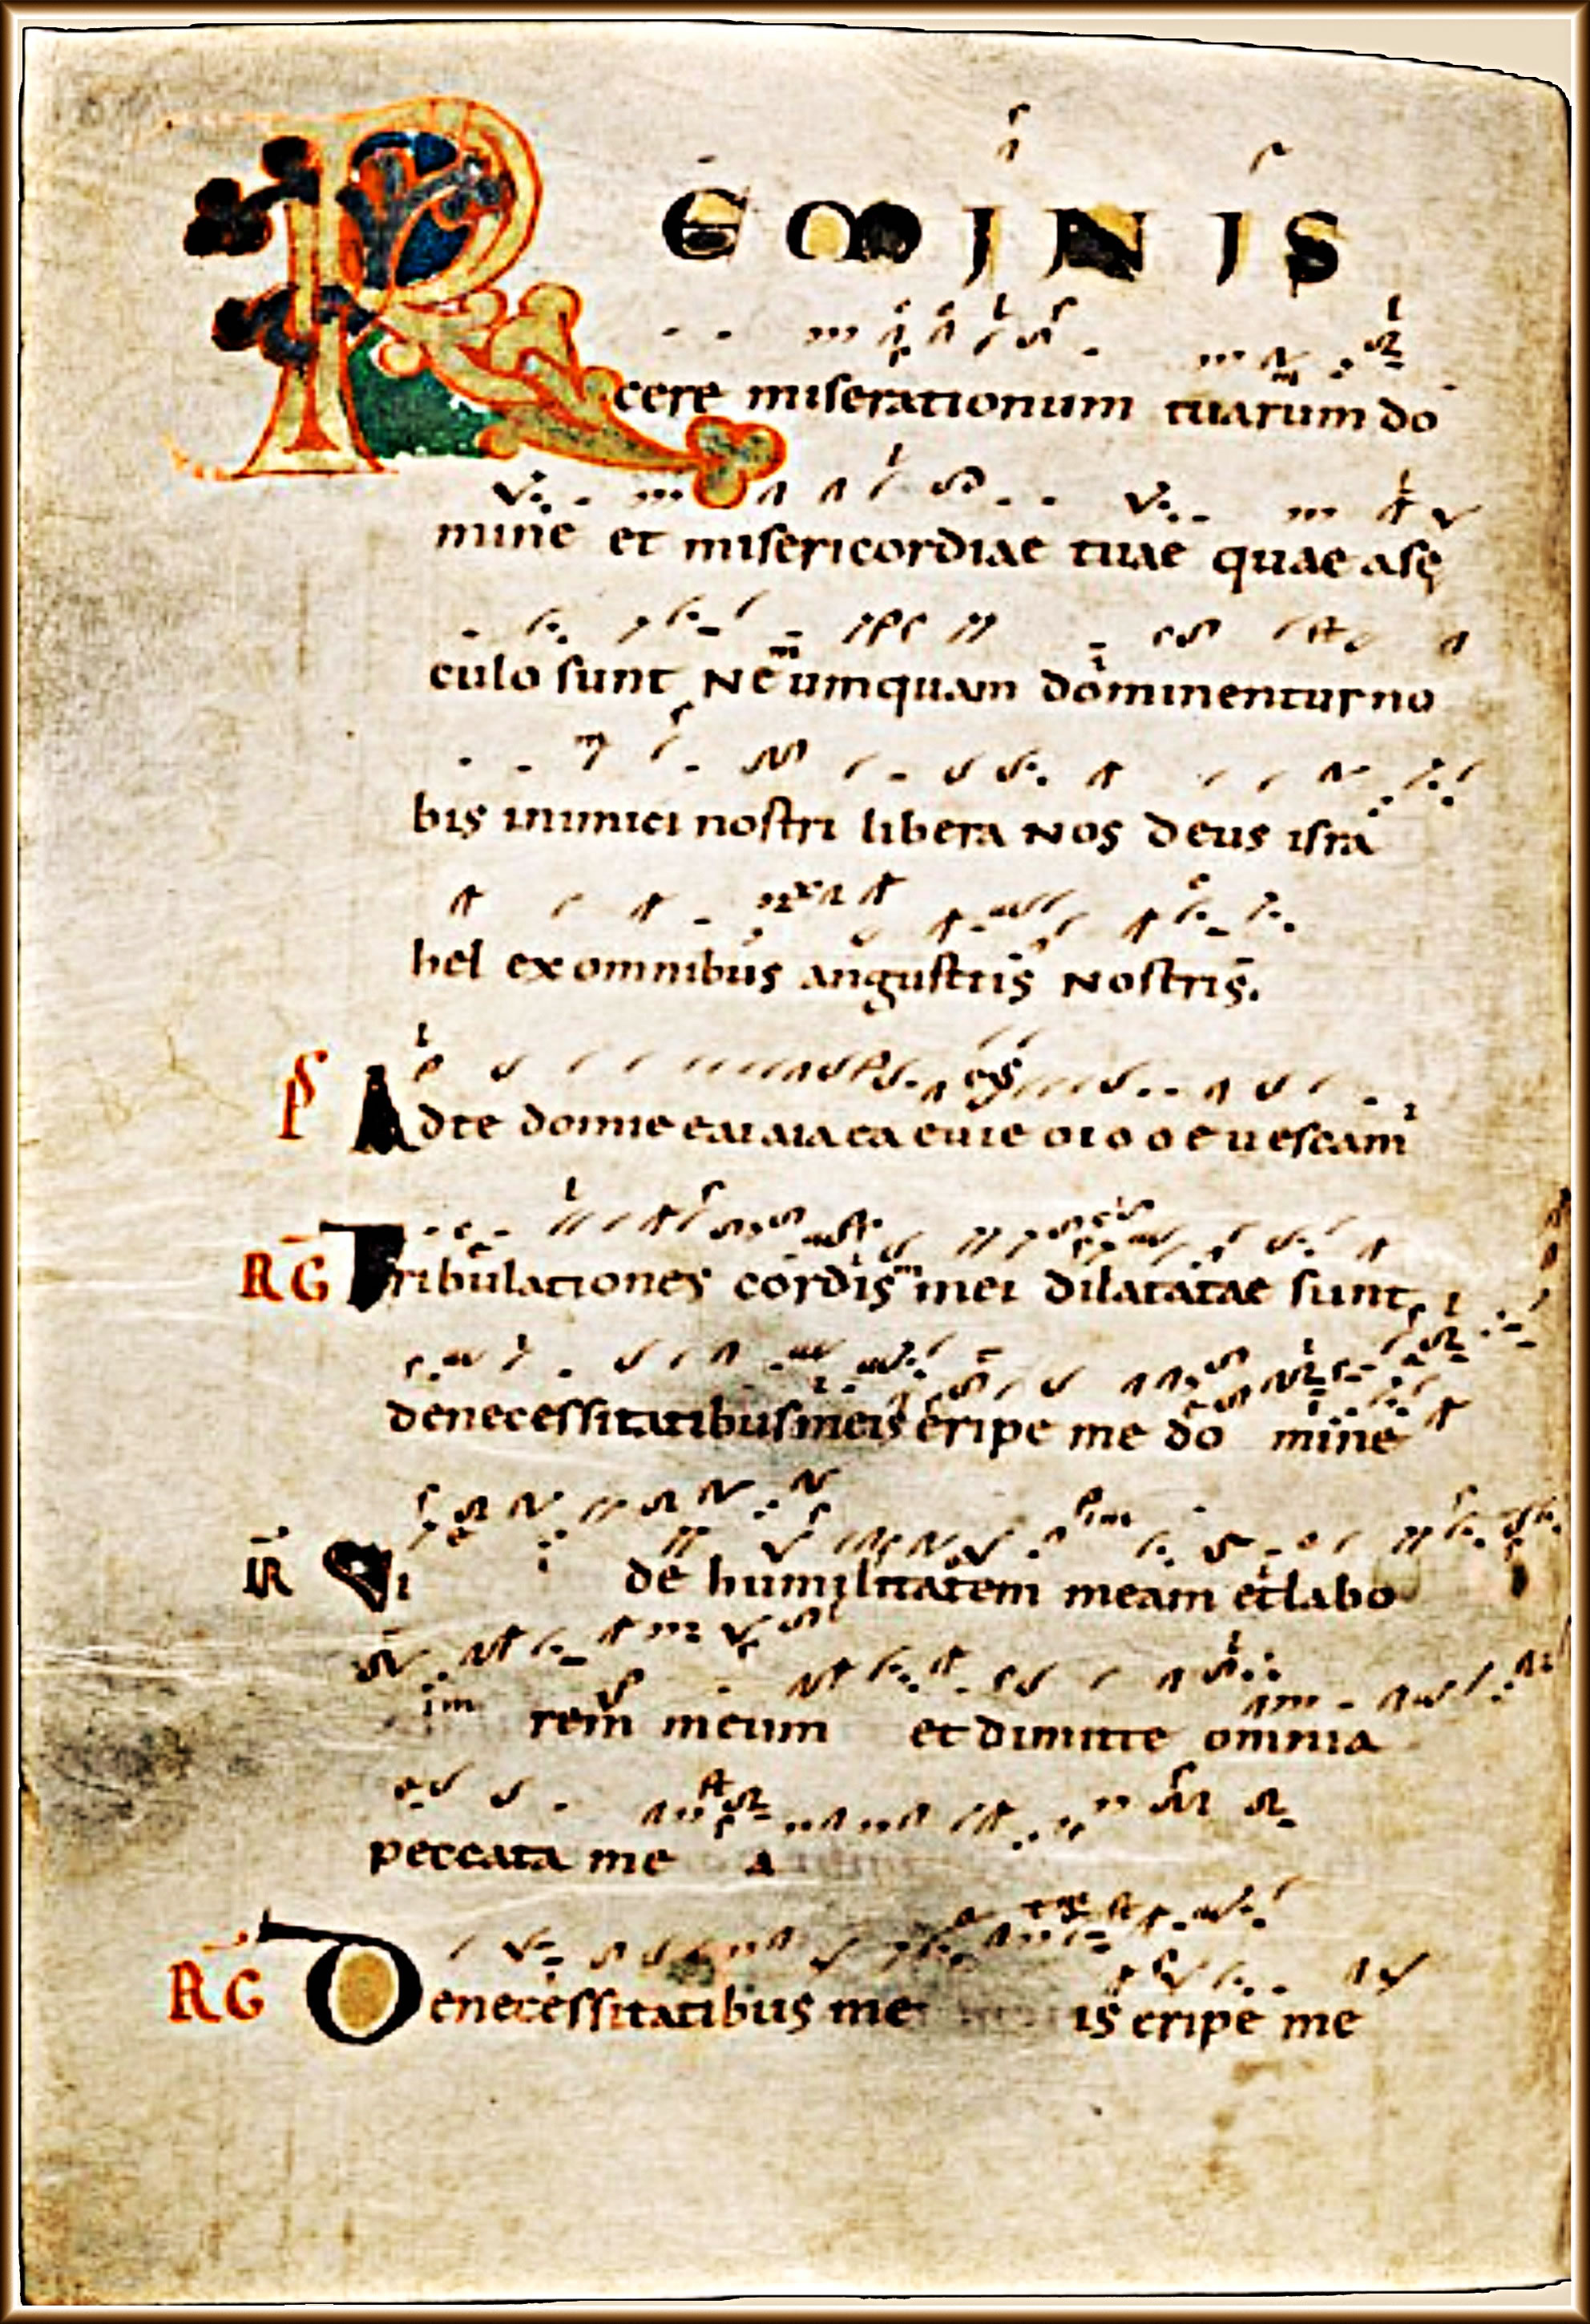 REMINIS
cere miserationum tuarum do
mine et misericordiae tuae quae a sę
culo sunt Ne umquam dominentur no
bis inimici nostri libera Nos deus isra
hel ex omnibus angustiis Nostris.
PS Ad te domne eaiaiaeaeuie oioo e u escam
RG Tribulationes cordis mei dilatatae sunt
de necessitatibus meis eripe me do mine
R Vi de humilitatem meam et labo
rem meum et dimitte omnia
peccata me a
RG De necessitatibus me is eripe me